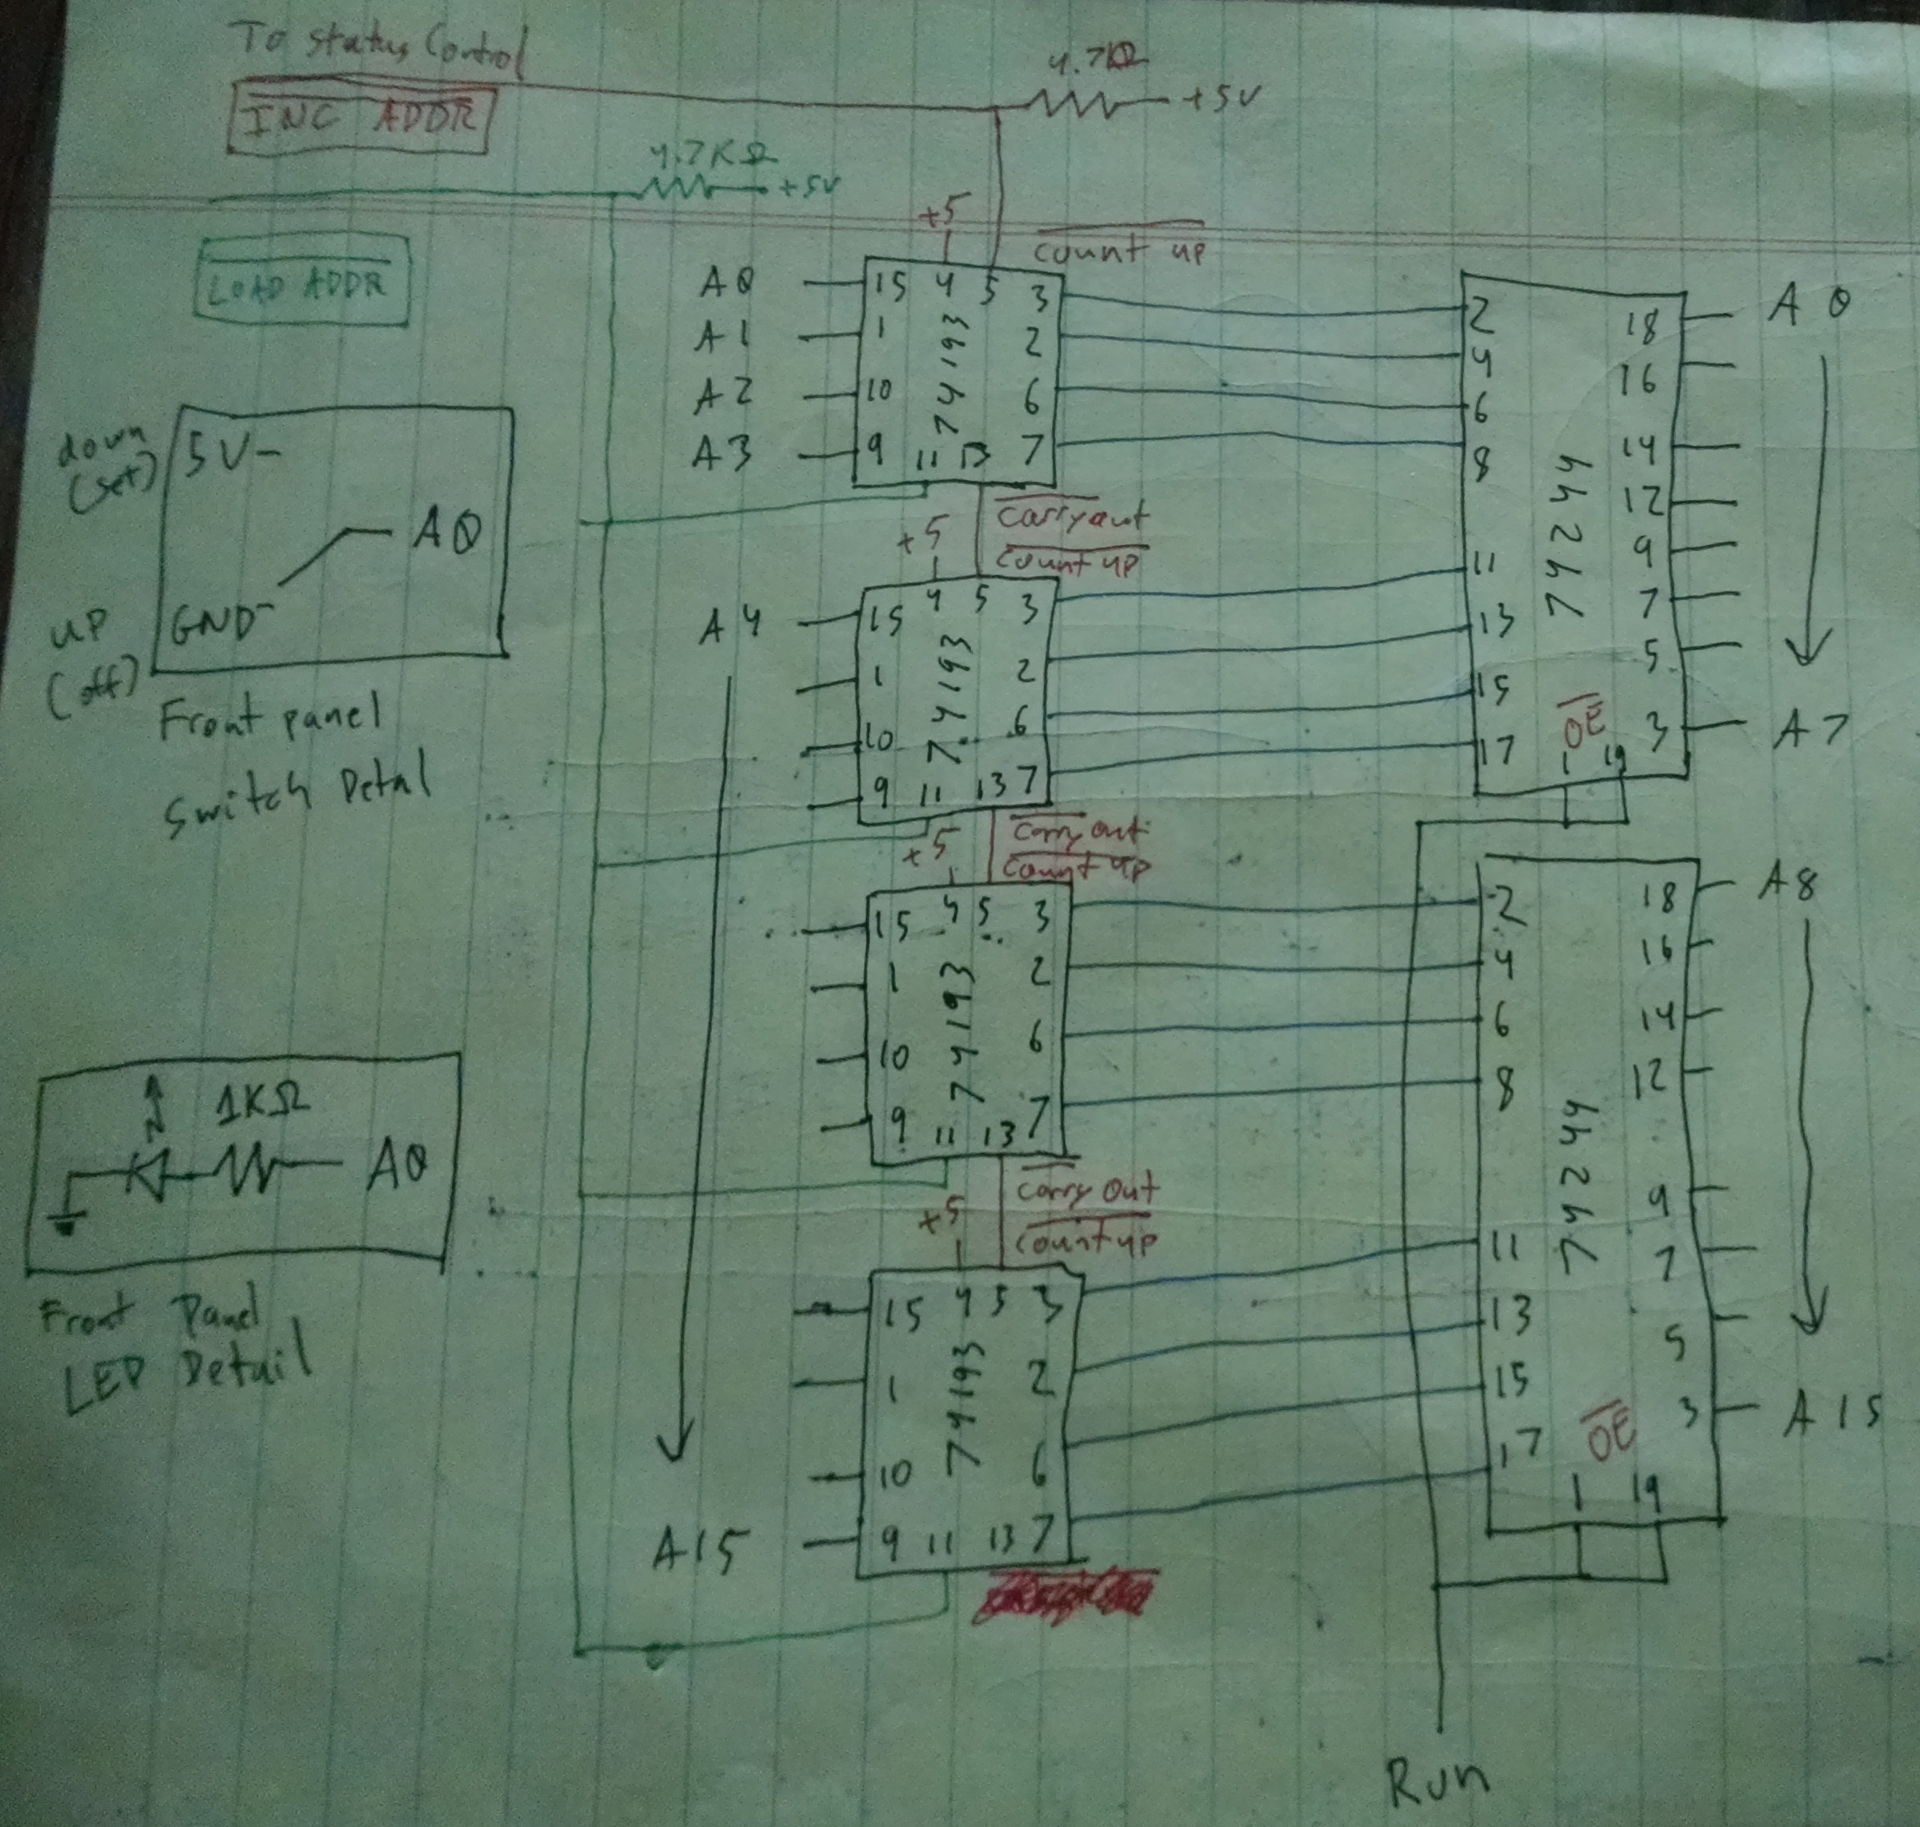 To Status Control
INC ADDR
4.7KΩ
+5V
4.7KΩ
+5V
LOAD ADDR
+5
count up
A0 15 4 5 3
A1 1 2
A2 10 6
A3 9 11 13 7
74193
2 18 A0
4 16
6 14
8 12
11 9
13 7
15 5
17 3 A7
74244
OE
1 19
down
(set)
5V-
A0
UP
(off)
GND-
Front panel
Switch Detal
Carry out
+5
count up
A4 15 4 5 3
1 2
10 6
9 11 13 7
74193
Carry out
+5
count up
15 4 5 3
1 2
10 6
9 11 13 7
74193
2 18 A8
4 16
6 14
8 12
11 9
13 7
15 5
17 3 A15
74244
OE
1 19
1KΩ
A0
Front Panel
LED Detail
Carry Out
+5
count up
15 4 5 3
1 2
10 6
A15 9 11 13 7
74193
Run